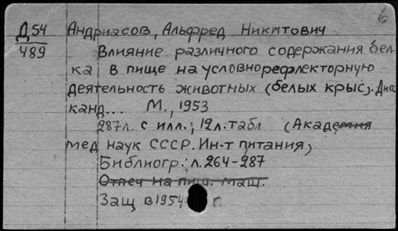 6
Д54 Андриасов, Альфред Никитович
489 Влияние различного содержания бел-
ка в пище на условнорефлекторную
деятельность животных (белых крыс). Дис.
канд... М., 1953
287л. с илл.; 12л. табл (Академия
мед наук СССР. Ин-т питания)
Библиогр.: л. 264-287
Отпеч на пиш. маш.
Защ в 1954 г.